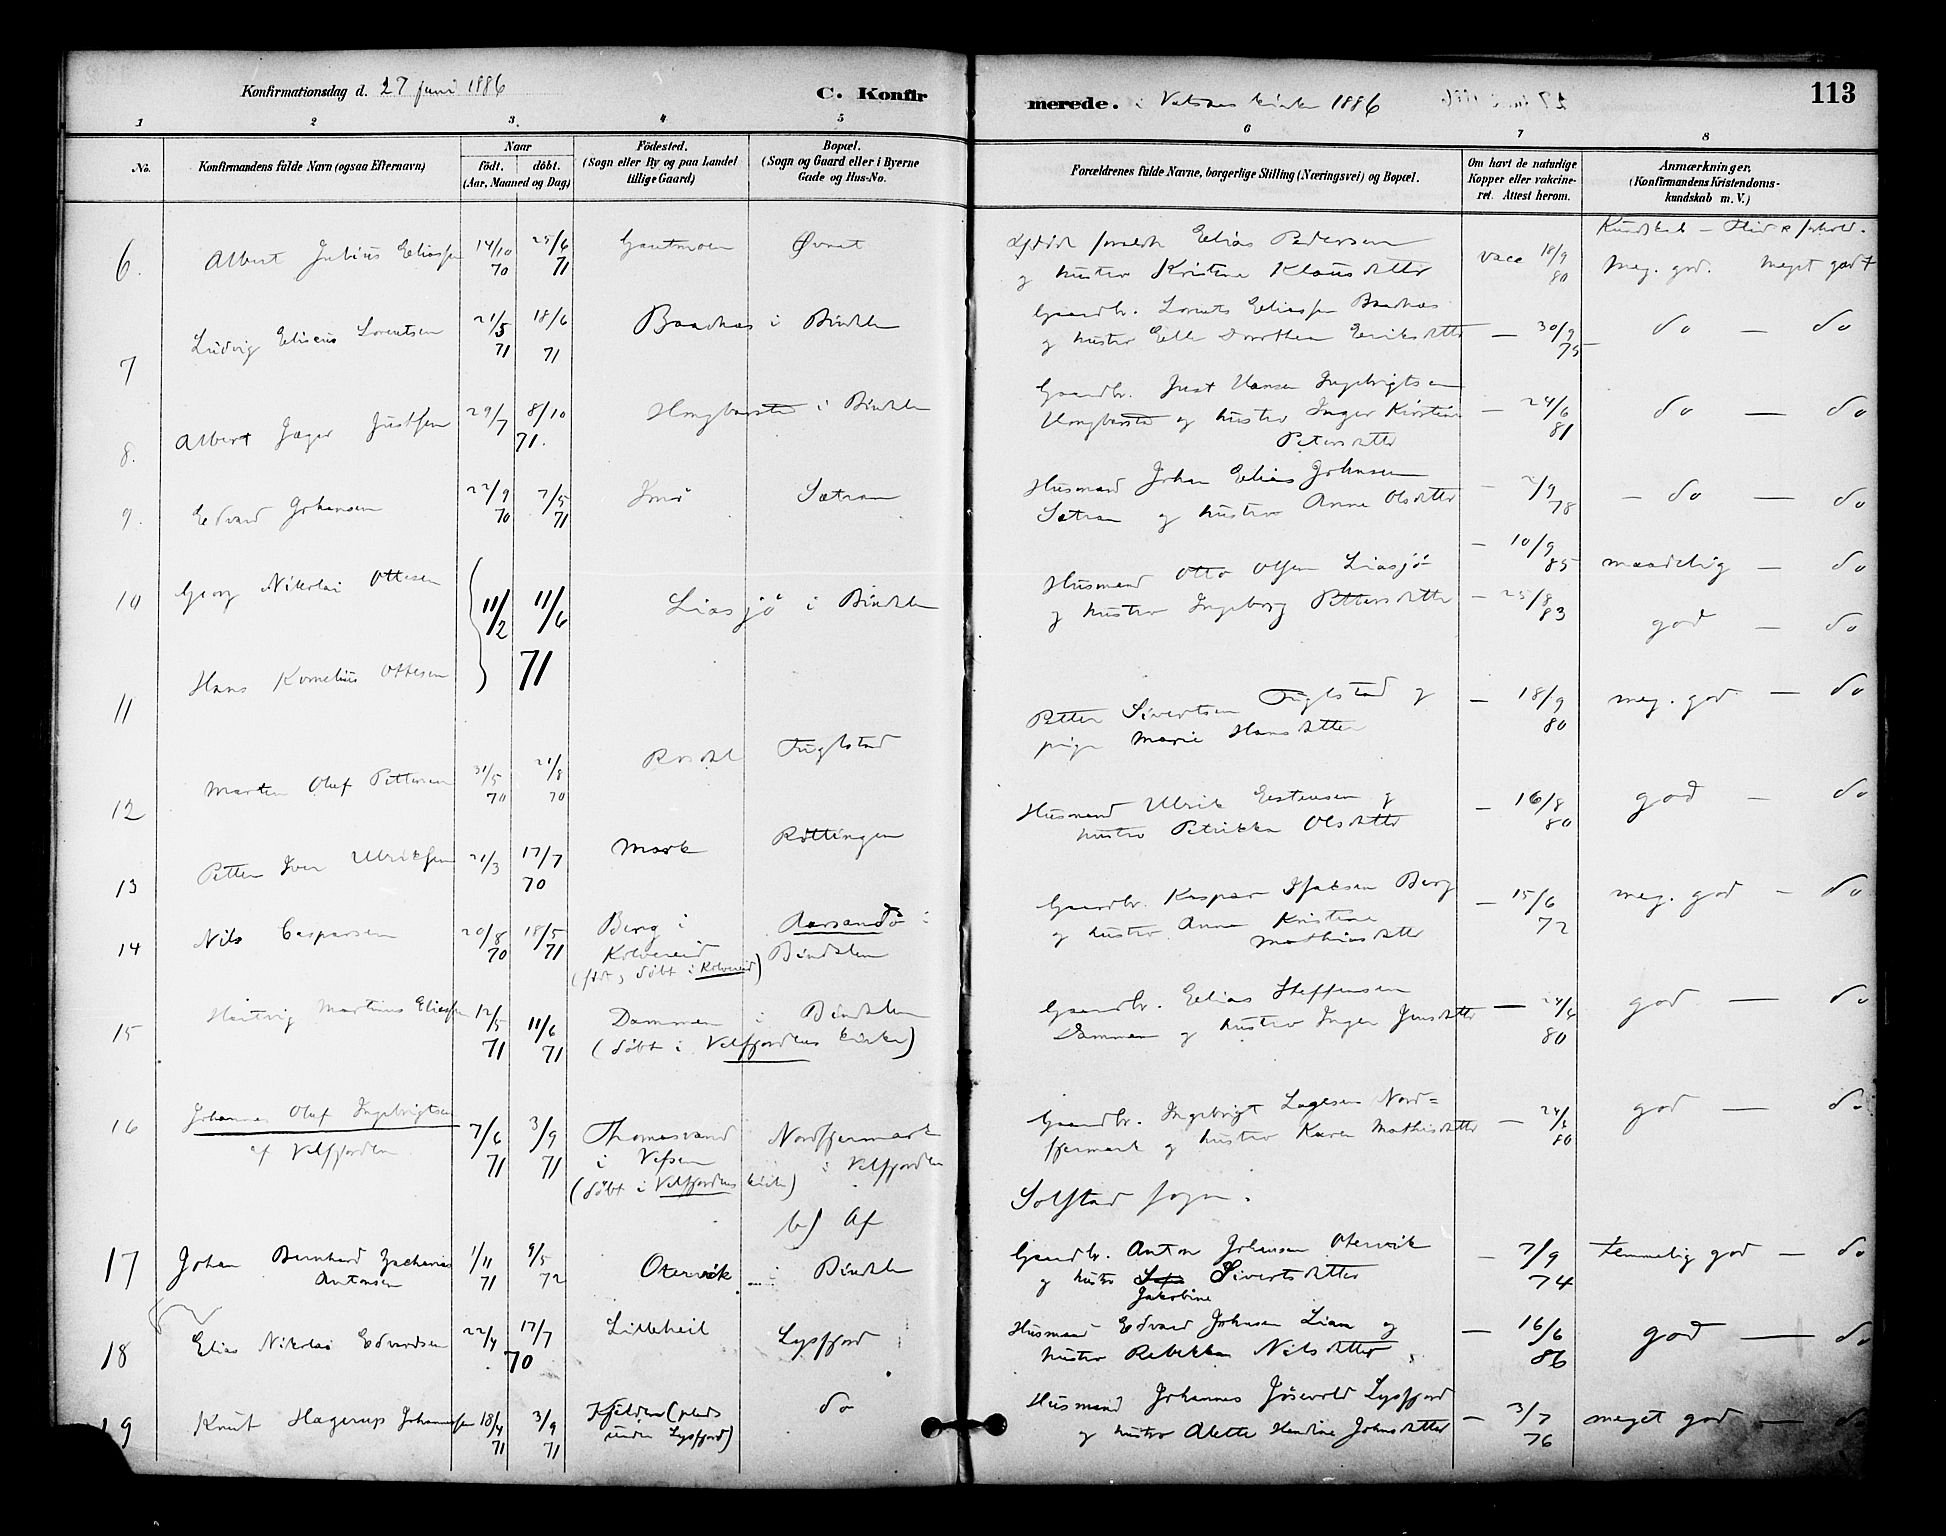 Konfirmationsdag d. 27 juni 1886
C. Konfirmerede. i Vatsaas kirke 1886
113
1 2 3 4 5 6 7 8
No.
Konfirmandens fulde Navn (ogsaa Efternavn)
Naar
Födt. döbt.
(Aar, Maaned og Dag)
Födested.
(Sogn eller By og paa Landet
tillige Gaard)
Bopæl.
(Sogn og Gaard eller i Byerne
Gade og Hus-No.
Forældrenes fulde Navne, borgerlige Stilling (Næringsvei) og Bopæl.
Om havt de naturlige
Kopper eller vakcine-
ret. Attest herom.
Anmærkninger.
(Konfirmandens Kristendoms-
kundskab m. V.)
Kundskab — Flid & forhold.
6. Albert Julius Eliassen 14/10 70 25/6 71 Gautmoen Øvrat
Elias Pedersen
og hustro Kristine Klausdatter vacc 18/9 80 Meg. god. meget godt
7 Ludvig Eliseus Lorentsen 21/5 71 18/6 71 Baadnes i Bindalen
Gaardbr. Lorents Eliassen Baadnes
og hustro Elle Dorothea Eriksdatter — 30/9 75 do — do
8. Albert Jæger Justsen 29/7 8/10 71. Hongbarstad i Bindalen
Gaardbr. Just Hansen Ingebrigtsen
Hongbarstad og hustro Inger Kirstine
Petersdatter — 24/6 81 do — do
9. Edvard Johansen 22/9 70 7/5 71 Imö Sætran
Husmand Johan Elias Johnsen
Sætran og hustro Anne Olsdatter — 2/9 78 — do — do
10 Georg Nikolai Ottesen 11/2 11/6 71 Liasjö i Bindalen
Husmand Otto Olsen Liasjö — 10/9 85 maadelig — do
og hustro Ingeborg Pettersdatter — 25/8 83 god — do
11 Hans Kornelius Ottesen
12 Morten Oluf Pettersen 31/5 70 21/8 70 Fuglstad
Petter Sivertsen Fuglstad og
pige Marie Hansdatter — 18/9 80 meg. god — do
13 Petter Iver Ulriksen 21/3 17/7 70 Mark Röttingen
Husmand Ulrik Estensen og
hustro Petrikka Olsdatter — 16/8 80 god — do
14 Nils Caspersen 20/8 70 18/5 71 Berg i Aarsandö i
Kolvereid Bindalen
(født, döbt i Kolvereid)
Gaardbr. Kaspar Isaksen Berg
og hustro Anna Kristine
Mathiasdatter — 15/6 72 meg. god — do
15 Hartvig Martinus Eliassen 12/5 71 11/6 71 Dammen i Bindalen
(döbt i Velfjordens kirke)
Gaardbr. Elias Steffensen
Dammen og hustro Inger Jensdatter — 80 god — do
16 Johannes Oluf Ingebrigtsen
af Velfjorden 7/6 71 3/9 71 Thomasvand Nordfjermark
i Vefsen i Velfjorden
(döbt i Velfjordens kirke)
Gaardbr. Ingebrigt Lagesen Nord=
fjermark og hustro Karen Mathisdatter — 80 god — do
b) Af Solstad sogn.
17 Johan Bernhard Zacharias
Antonsen 1/11 71 9/5 72 Otervik i Bindalen
Gaardbr. Anton Johansen Otervik
og hustro Sivertsdatter
Jakobine — 7/9 74 temmelig god — do
18 Elias Nikolai Edvardsen 22/4 17/7 70 Lilleheil Lysfjord
Husmand Edvard Johnsen Lian og
hustro Rebekka Nilsdatter — 16/6 86 god — do
19 Knut Hagerup Johannessen 18/4 71 3/9 71 Kjelden (plads
under Lysfjord) do
Husmand Johannes Lysfjord
og hustro Alette Hendine Johnsdatter — 3/7 76 meget god — do